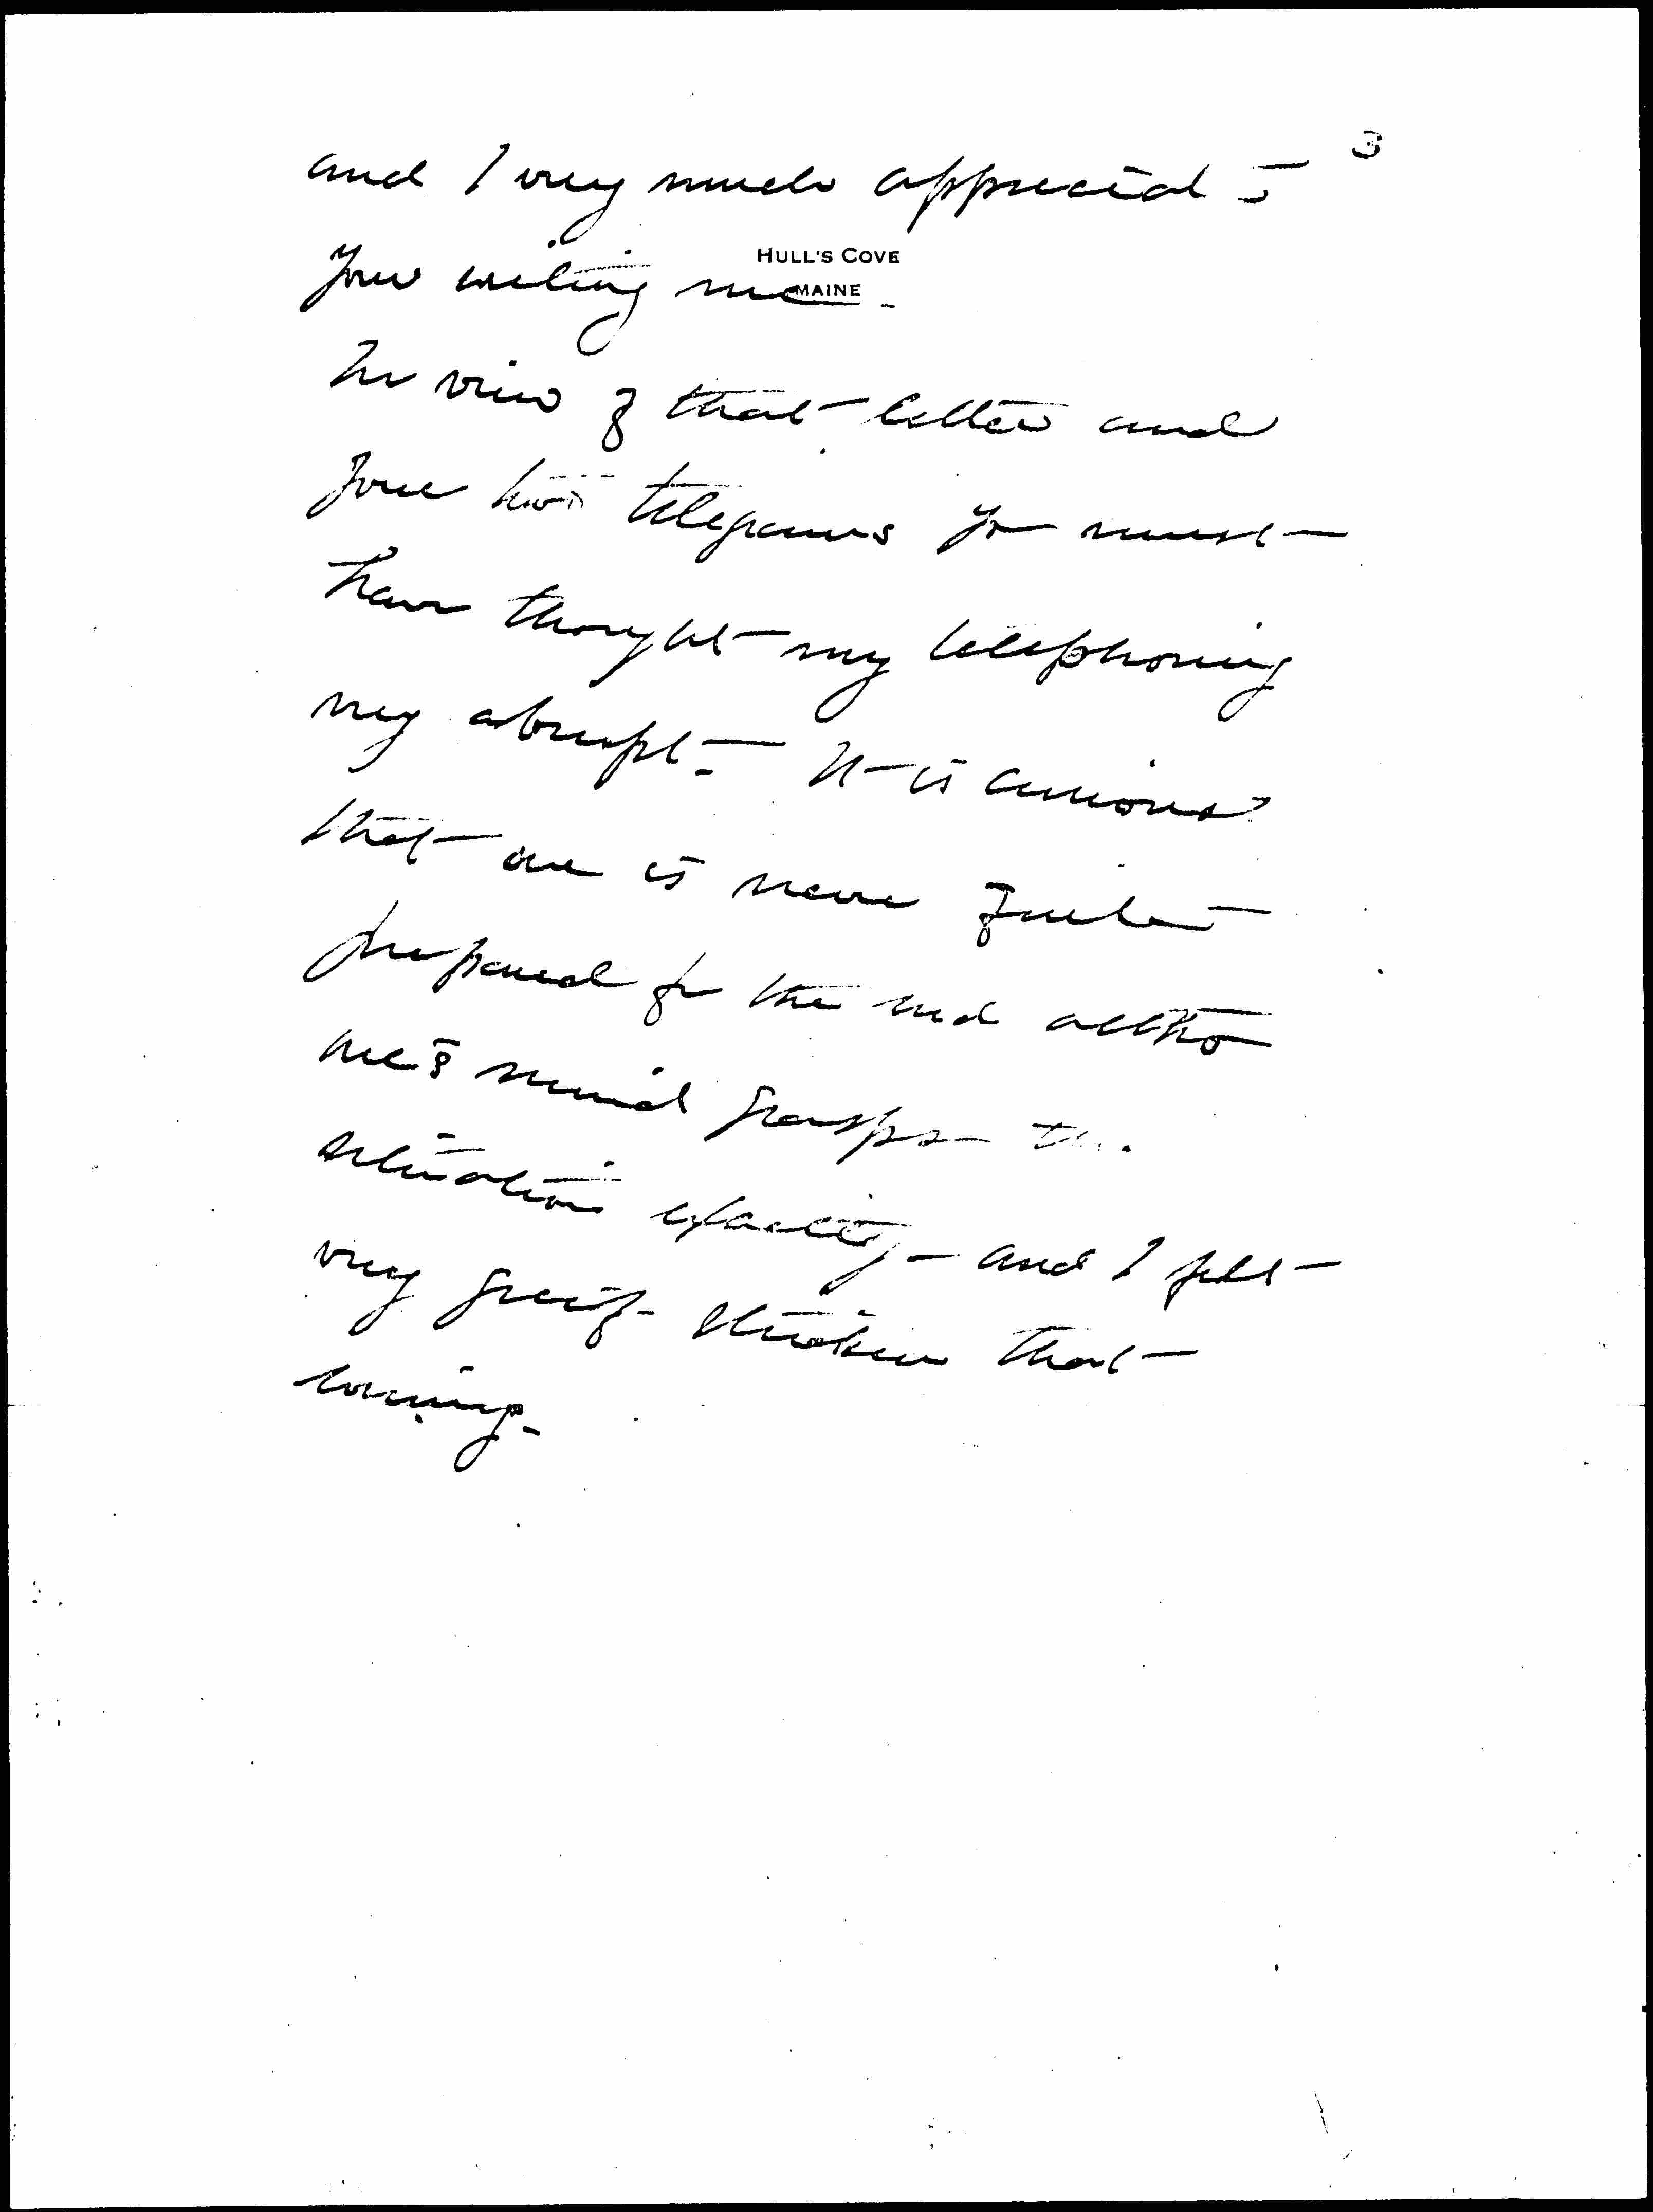 3
and I very much appreciate
your writing me.
HULL'S COVE
MAINE
In view of that letter and
your two telegrams you must
have thought my telephoning
very abrupt. It is curious
that one is never quite
prepared for the end altho
one's mind grasps the
situation exactly - and I felt
very grief-stricken that
evening.